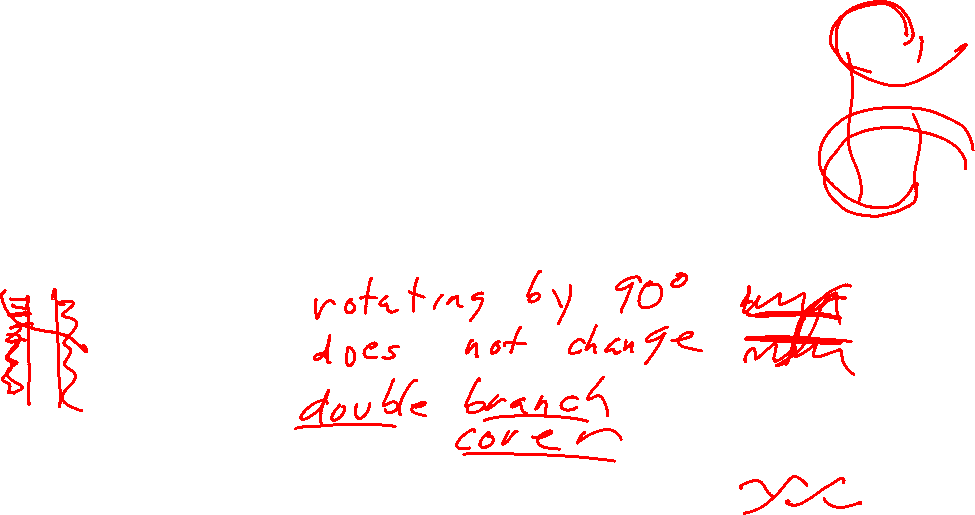 rotating by 90°
does not change
double branch
cover